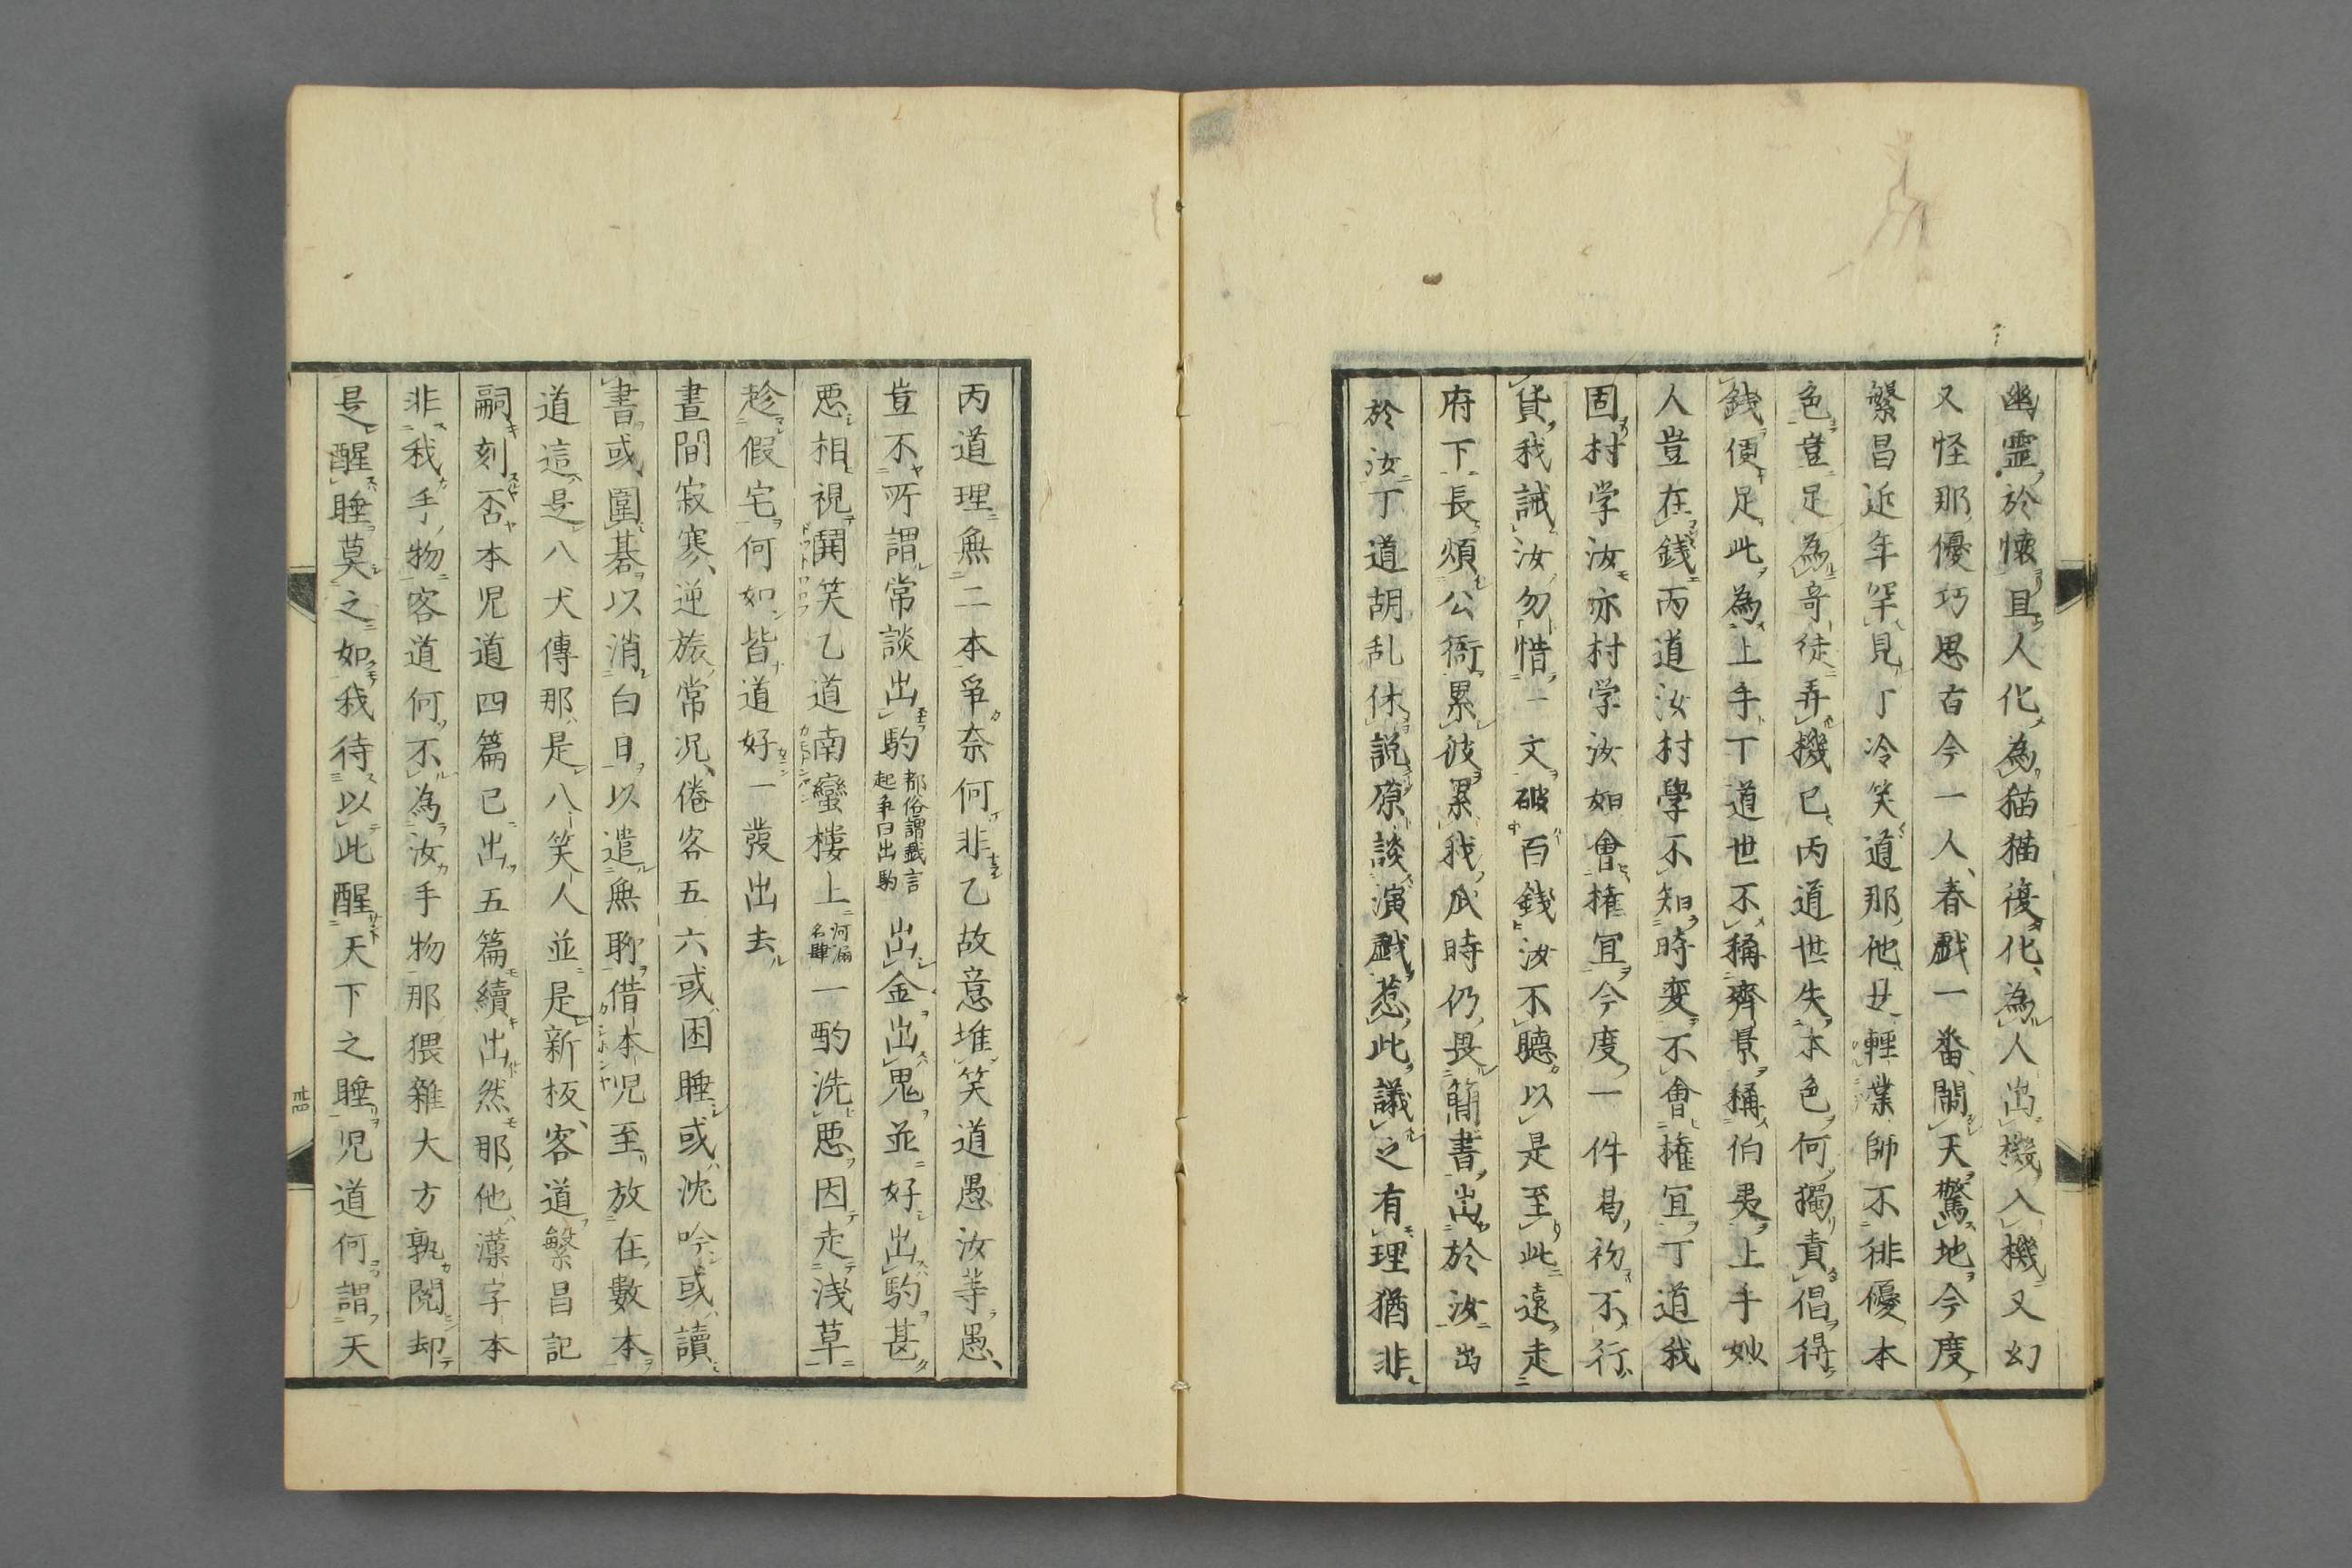 幽靈於懐且人化為猫猫復化為人出機入機又幻
又怪那優巧思古今一人春戯一番鬧天驚地今度
繁昌近年罕見丁冷笑道那他丑輕業師不徘優本
色豈足為奇徒弄機已丙道世失本色何獨責倡得
錢便足此為上手丁道世不稱齊景稱伯夷上手妙
人豈在錢丙道汝村學不知時変不會権宜丁道我
固村学汝亦村学汝如會権宜今度一件曷初不行
貨我誡汝勿惜一文破百錢汝不聽以是至此遠走
府下長煩公衙累彼累我瓜時仍畏簡書出於汝出
於汝丁道胡乱休説原談演戯惹此議之有理猶非
丙道理無二本爭奈何非乙故意堆笑道愚汝等愚
豈不所謂常談出駒都俗謂戯言起爭曰出駒出金出鬼並好出駒甚
悪相視鬨笑乙道南蠻樓上河漏名肆一酌洗悪因走浅草
趁假宅何如皆道好一發出去
晝間寂寒逆旅常况倦客五六或困睡或沈吟或讀
書或圍碁以消白日以遣無聊借本児至放在數本
道這是八犬傳那是八笑人並是新板客道繁昌記
嗣刻否本児道四篇已出五篇續出然那他漢字本
非我手物客道何不為汝手物那猥雜大方孰閲却
是醒睡莫之如我待以此醒天下之睡児道何謂天